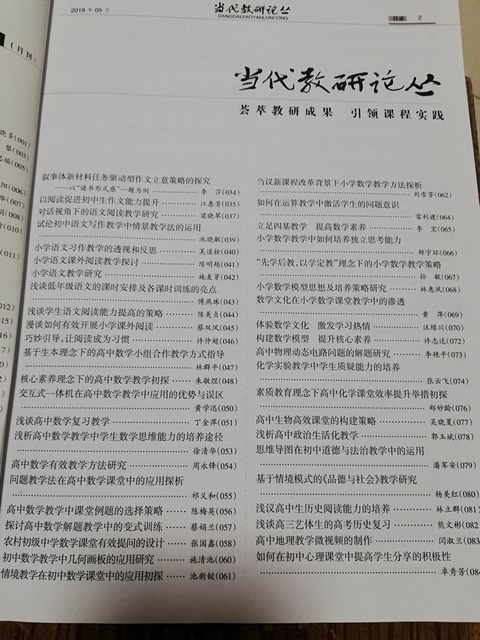 2018 年 05 月
当代教研论丛
DANGDAIJIAOYANLUNCONG
目录 2
（月刊）
当代教研论丛
荟萃教研成果 引领课程实践
叙事体新材料任务驱动型作文立意策略的探究
——以“读书形式感”一题为例 ……… 李 莎(034)
以阅读促进初中生作文能力提升 ……… 江惠芳(035)
对话视角下的语文阅读教学研究 ……… 梁晓翠(037)
试论初中语文写作教学中情景教学法的运用
池晓敏(039)
小学语文写作教学的透视和反思 ……… 吴道铨(040)
小学语文课外阅读教学探讨 ……… 陈明越(041)
小学语文教学研究 ……… 施麦芽(042)
浅谈低年级语文的课时安排及各课时训练的亮点
傅燕珠(043)
浅谈学生语文阅读能力提高的策略 ……… 陈美贞(044)
漫谈如何有效开展小学课外阅读 ……… 蔡双凤(045)
巧妙引导,让阅读成为习惯 ……… 许仲超(046)
基于生本理念下的高中数学小组合作教学方式指导
林群平(047)
核心素养理念下的高中数学教学初探 ……… 朱敏煜(048)
交互式一体机在高中数学教学中应用的优势与误区
黄学迅(050)
浅谈高中数学复习教学 ……… 丁金萍(051)
浅析高中数学教学中学生数学思维能力的培养途径
徐清华(053)
高中数学有效教学方法研究 ……… 周永锋(054)
问题教学法在高中数学课堂中的应用探析
祁义和(055)
高中数学教学中课堂例题的选择策略 ……… 陈梅英(056)
探讨高中数学解题教学中的变式训练 ……… 蔡娟兰(057)
农村初级中学数学课堂有效提问的设计 ……… 张国鑫(058)
初中数学教学中几何画板的应用研究 ……… 施清池(060)
情境教学在初中数学课堂中的应用初探 ……… 池新铰(061)
刍议新课程改革背景下小学数学教学方法探析
刘雪芳(062)
如何在运算教学中激活学生的问题意识
雷利建(064)
立足四基教学 提高数学素养 ……… 李 宏(065)
小学数学教学中如何培养独立思考能力
郑宇环(066)
“先学后教,以学定教”理念下的小学数学教学策略
孙 敏(067)
小学数学模型思及培养策略研究 ……… 林惠凤(068)
数学文化在小学数学课堂教学中的渗透
黄 萍(069)
体验数学文化 激发学习热情 ……… 汪绿川(070)
构建数学模型 提升核心素养 ……… 许志达(072)
高中物理动态电路问题的解题研究 ……… 李艳平(073)
化学实验教学中学生质疑能力的培养
张云飞(074)
素质教育理念下高中化学课堂效率提升举措初探
郑妙龄(076)
高中生物高效课堂的构建策略 ……… 吴晓夏(077)
浅析高中政治生活化教学 ……… 郭玉斌(078)
思维导图在初中道德与法治教学中的运用
潘军安(079)
基于情境模式的《品德与社会》教学研究
杨美红(080)
浅议高中生历史阅读能力的培养 ……… 林立群(081)
浅谈高三艺体生的高考历史复习 ……… 熊文彬(082)
高中地理教学微视频的制作 ……… 闫淑兰(083)
如何在初中心理课堂中提高学生分享的积极性
卓秀芳(084)